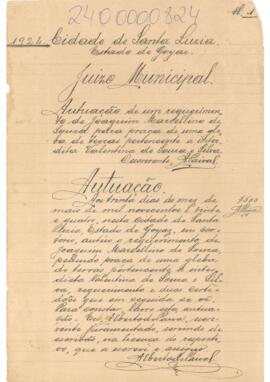 2400000824
Fl. 1
1924. Cidade de Santa Luzia
Estado de Goyaz.
Juizo Municipal.
Autuação de um requerimen-
to de Joaquim Marcellino de
Souza para praça de uma gle-
ba de terras pertencente a inter-
dita Valentina de Souza e Silva.
Autuação.
Aos trinta dias do mez de
maio de mil novecentos e vinte
e quatro, nesta cidade de Santa
Luzia, Estado de Goyaz, em car-
torio, autúo o requerimento de
Joaquim Marcellino de Souza,
pedindo praça de uma gleba
de terras pertencente a inter-
dita Valentina de Souza e Sil-
va, requerimento e duas certi-
dões que em seguida se vê.
Para constar, lavro esta autua-
ção. Eu,
vente juramentado, servindo de
escrivão, na licença do respecti-
vo, que a escrevi e assigno